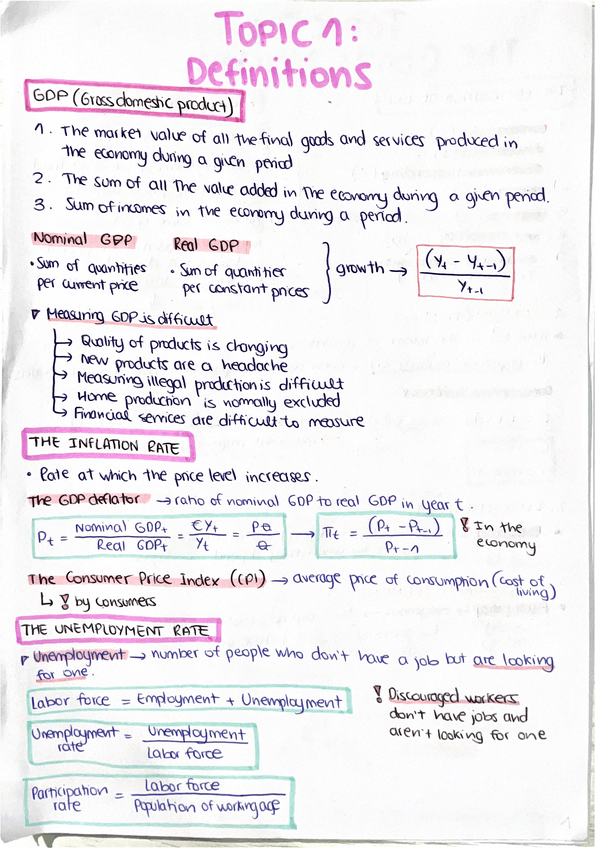 TOPIC 1:
Definitions
GDP (Gross domestic product)
1. The market value of all the final goods and services produced in
the economy during a given period
2. The sum of all the value added in the economy during a given period.
3. Sum of incomes in the economy during a period.
Nominal GDP Real GDP
• Sum of quantities • Sum of quantities growth → (Yt - Yt-1) / Yt-1
per current price per constant prices
Measuring GDP is difficult
→ Quality of products is changing
→ New products are a headache
→ Measuring illegal production is difficult
→ Home production is normally excluded
→ Financial services are difficult to measure
THE INFLATION RATE
• Rate at which the price level increases.
The GDP deflator → ratio of nominal GDP to real GDP in year t.
Pt = Nominal GDPt / Real GDPt = €Yt / Yt = PQ / Q → πt = (Pt - Pt-1) / Pt-1 ! In the
economy
The Consumer Price Index (CPI) → average price of consumption (cost of
living)
↳ ! by consumers
THE UNEMPLOYMENT RATE
Unemployment → number of people who don't have a job but are looking
for one.
Labor force = Employment + Unemployment
! Discouraged workers
don't have jobs and
aren't looking for one
Unemployment rate = Unemployment / Labor force
Participation rate = Labor force / Population of working age
1